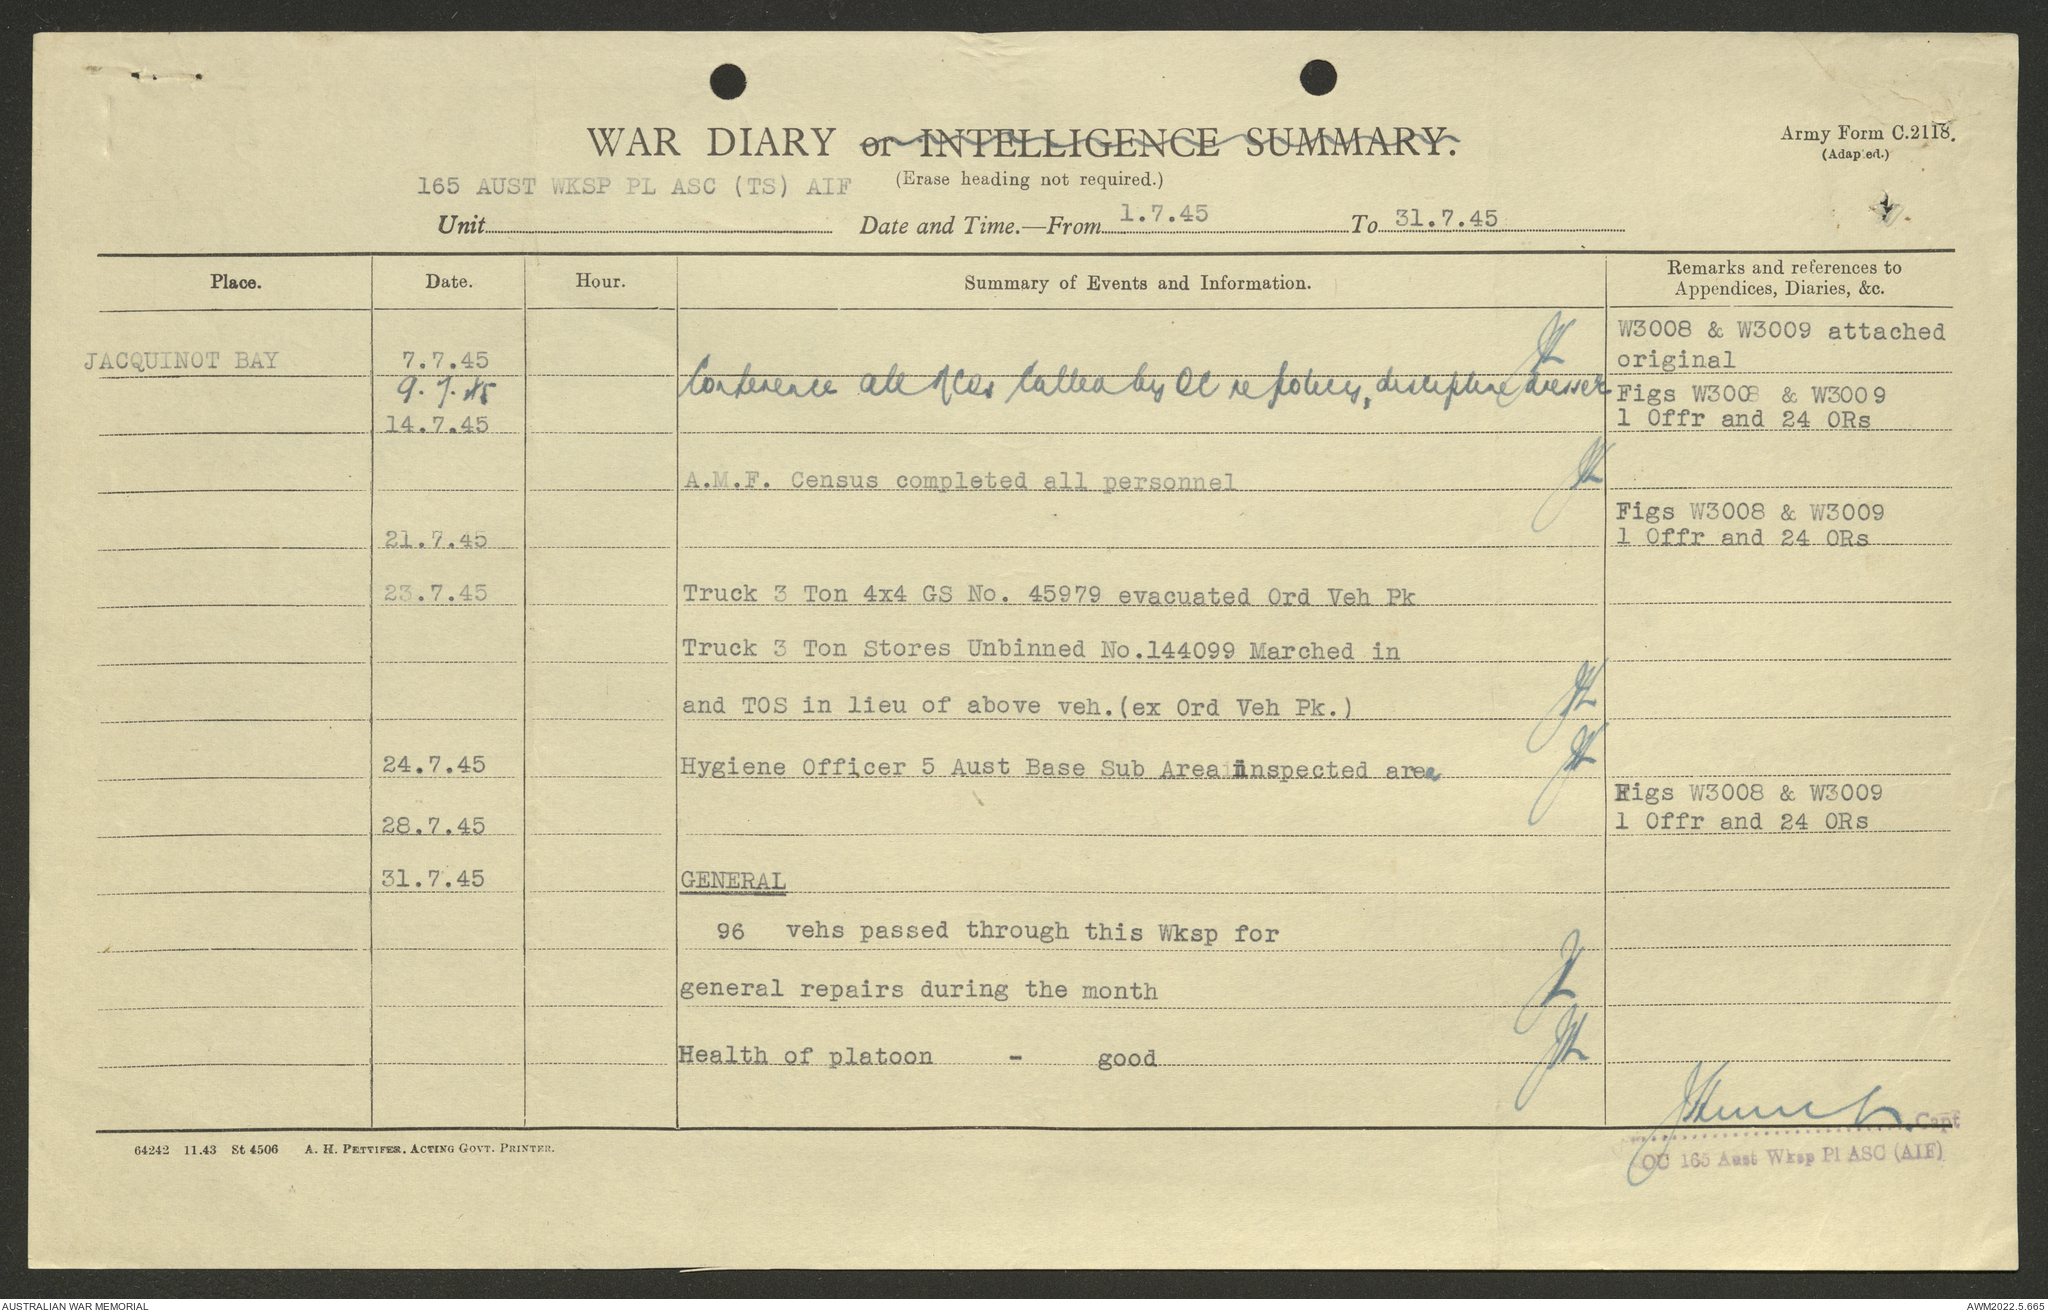 WAR DIARY or INTELLIGENCE SUMMARY.
Army Form C.2118.
(Adapted.)
(Erase heading not required.)
165 AUST WKSP PL ASC (TS) AIF
Unit Date and Time.—From 1.7.45 To 31.7.45
Place. Date. Hour. Summary of Events and Information. Remarks and references to Appendices, Diaries, &c.
W3008 & W3009 attached
JACQUINOT BAY 7.7.45 original
9.7.45 Conference all NCOs called by OC re policy, discipline dress etc
Figs W3008 & W3009
14.7.45 1 Offr and 24 ORs
A.M.F. Census completed all personnel
Figs W3008 & W3009
21.7.45 1 Offr and 24 ORs
23.7.45 Truck 3 Ton 4x4 GS No. 45979 evacuated Ord Veh Pk
Truck 3 Ton Stores Unbinned No.144099 Marched in
and TOS in lieu of above veh.(ex Ord Veh Pk.)
24.7.45 Hygiene Officer 5 Aust Base Sub Area inspected area
Figs W3008 & W3009
28.7.45 1 Offr and 24 ORs
31.7.45 GENERAL
96 vehs passed through this Wksp for
general repairs during the month
Health of platoon - good
Capt
OC 165 Aust Wksp Pl ASC (AIF)
64242 11.43 St 4506 A. H. PETTIFER, ACTING GOVT. PRINTER.
AUSTRALIAN WAR MEMORIAL AWM2022.5.665